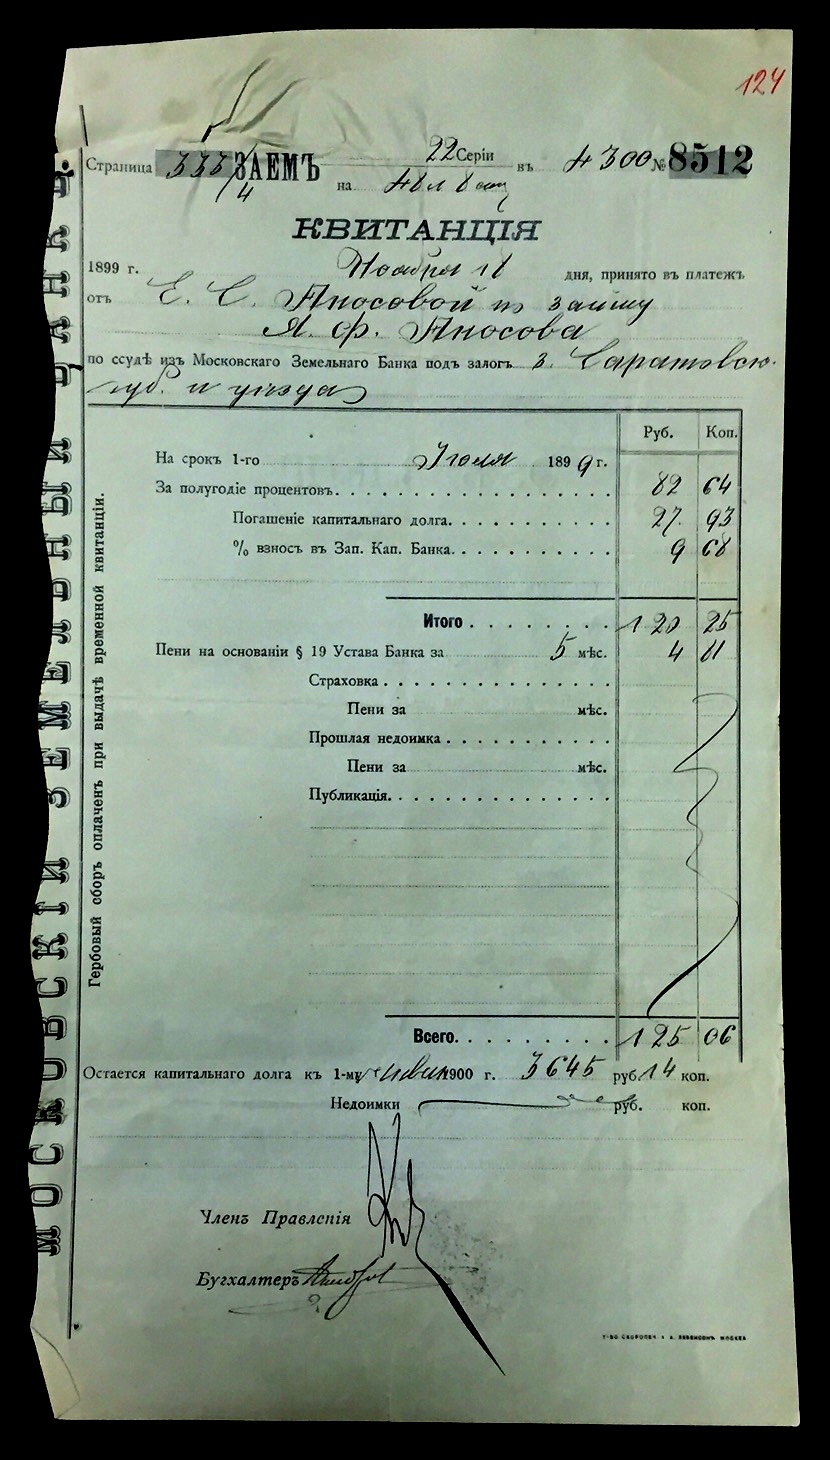 124
Страница 333/4 ЗАЕМЪ 22 Серіи въ 4300 № 8512
на 48 л 8 м
КВИТАНЦІЯ
1899 г. Ноября 18 дня, принято въ платежъ
отъ Е. С. Аносовой по займу
Я. Ф. Аносова
по ссудѣ изъ Московскаго Земельнаго Банка подъ залогъ з. Саратовской
губ. и уѣзда
Руб. Коп.
На срокъ 1-го Іюля 1899 г.
За полугодіе процентовъ 82 64
Погашеніе капитальнаго долга 27 93
% взносъ въ Зап. Кап. Банка 9 68
Итого 120 25
Пени на основаніи § 19 Устава Банка за 5 мѣс. 4 81
Страховка
Пени за мѣс.
Прошлая недоимка
Пени за мѣс.
Публикація
Всего 125 06
Остается капитальнаго долга къ 1-му Января 1900 г. 3645 руб. 14 коп.
Недоимки руб. коп.
Членъ Правленія
Бухгалтеръ
Гербовый сборъ оплаченъ при выдачѣ временной квитанціи.
МОСКОВСКІЙ ЗЕМЕЛЬНЫЙ БАНКЪ
Т-ВО СКОРОПЕЧ. А. А. ЛЕВЕНСОНЪ МОСКВА